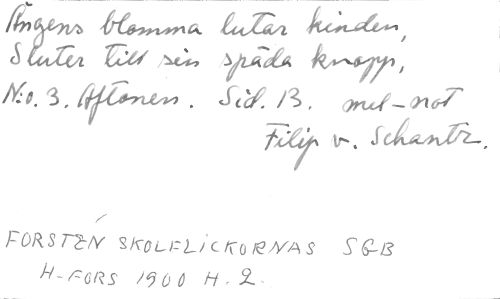 Ängens blomma lutar kinden,
Sluter till sin späda knopp,
N:o. 3. Aftonen. Sid. 13. mel-not
Filip v. Schantz.
FORSTÉN SKOLFLICKORNAS SGB
H-FORS 1900 H. 2.